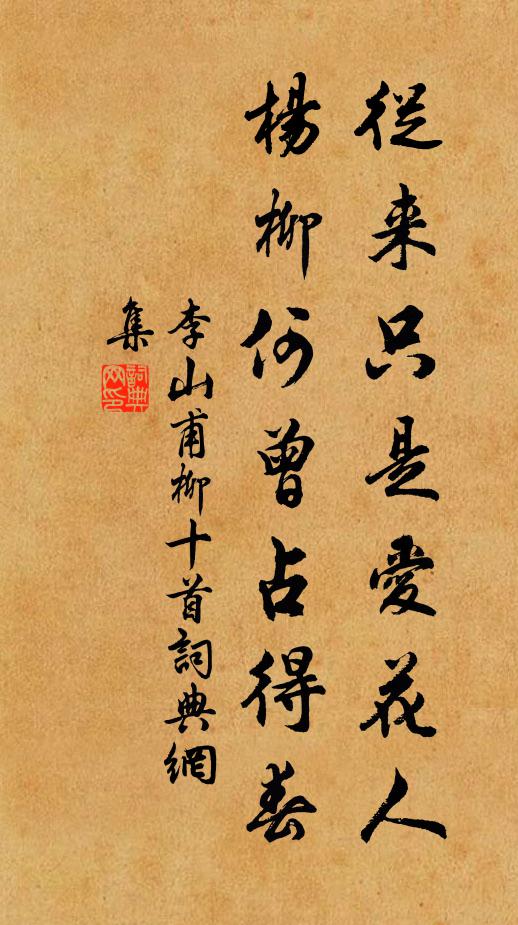 從来只是愛花人
楊柳何曾占得春
李山甫柳十首詞典網
集
詞典
网印